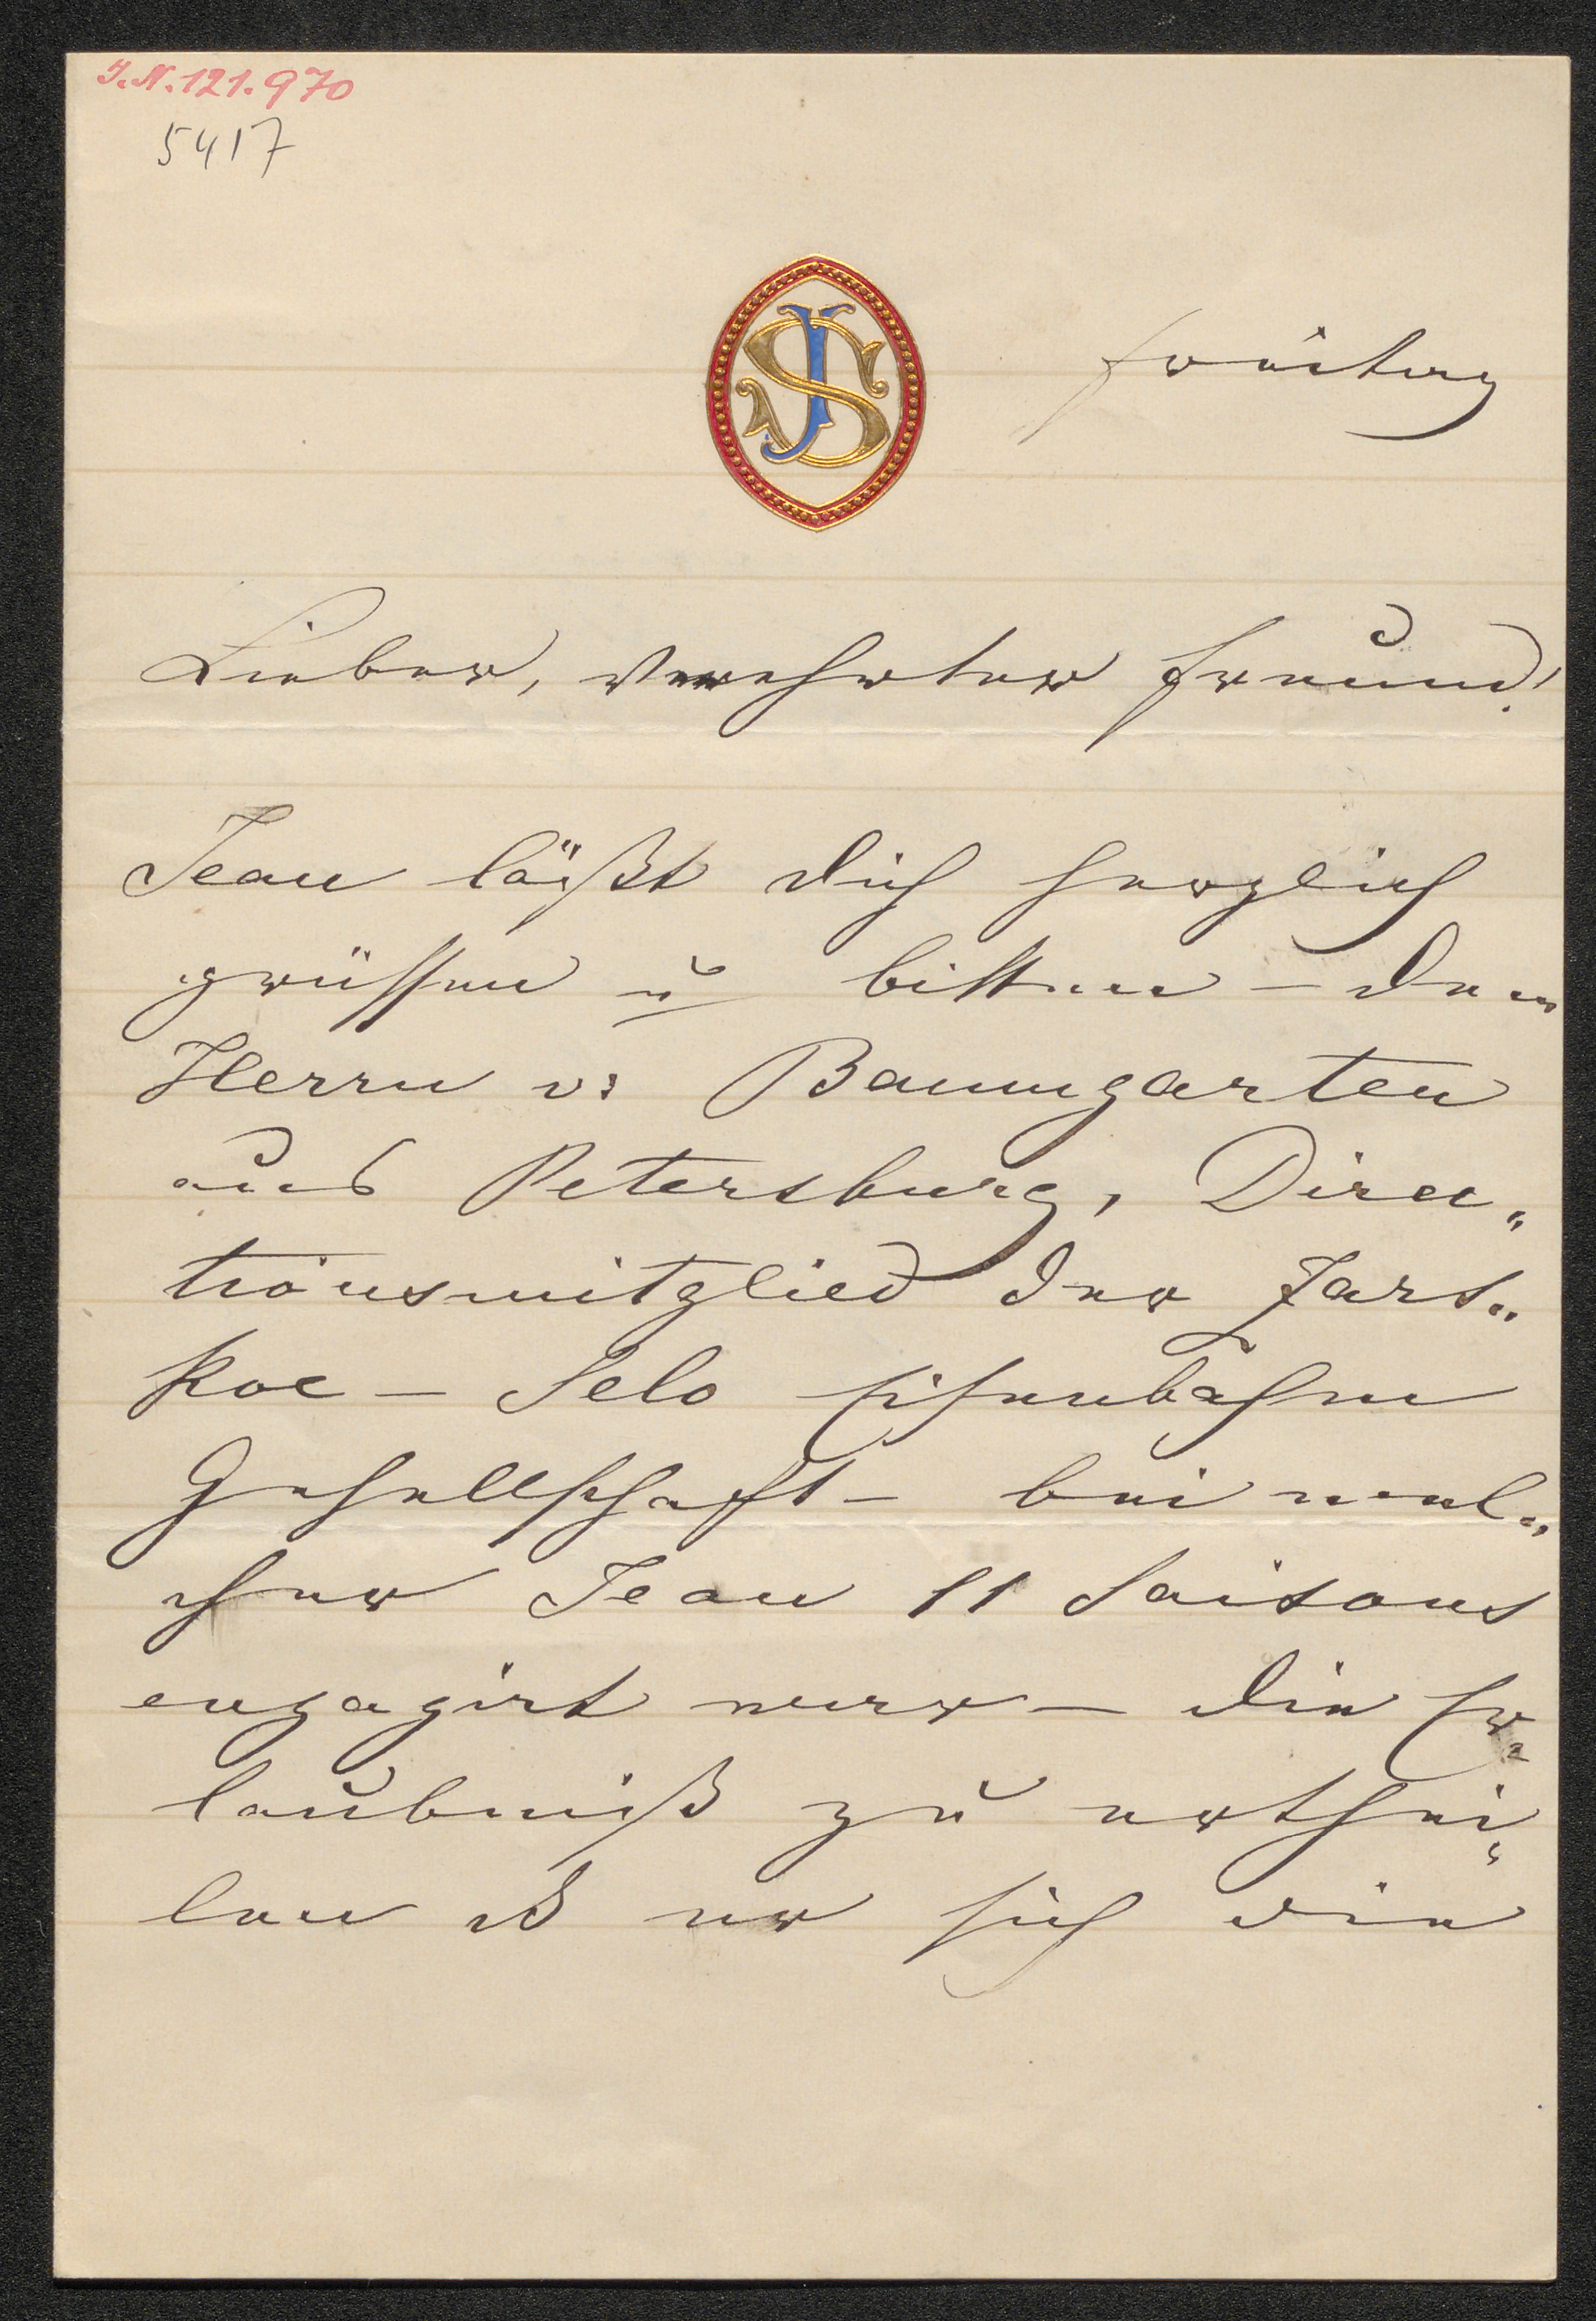 J.N.121.970
5417
JS
Freitag
Lieber, verehrter Freund!
Jean läßt Dich herzlich
grüssen u bitten – dem
Herrn v: Baumgarten
aus Petersburg, Direc„
tionsmitglied der Zars„
koe – Selo Eisenbahn
Gesellschaft – bei wel„
cher Jean 11 Saisons
engagirt war – die Er„
laubniß zu erthei„
len daß er sich die